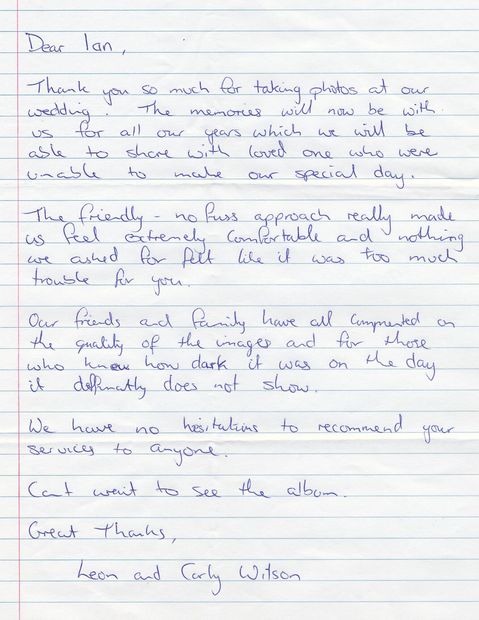 Dear Ian,
Thank you so much for taking photos at our
wedding. The memories will now be with
us for all our years which we will be
able to share with loved one who were
unable to make our special day.
The friendly - no fuss approach really made
us feel extremely comfortable and nothing
we asked for felt like it was too much
trouble for you.
Our friends and family have all commented on
the quality of the images and for those
who know how dark it was on the day
it deffinatly does not show.
We have no hesitations to recommend your
services to anyone.
Cant wait to see the album.
Great Thanks,
Leon and Carly Witson